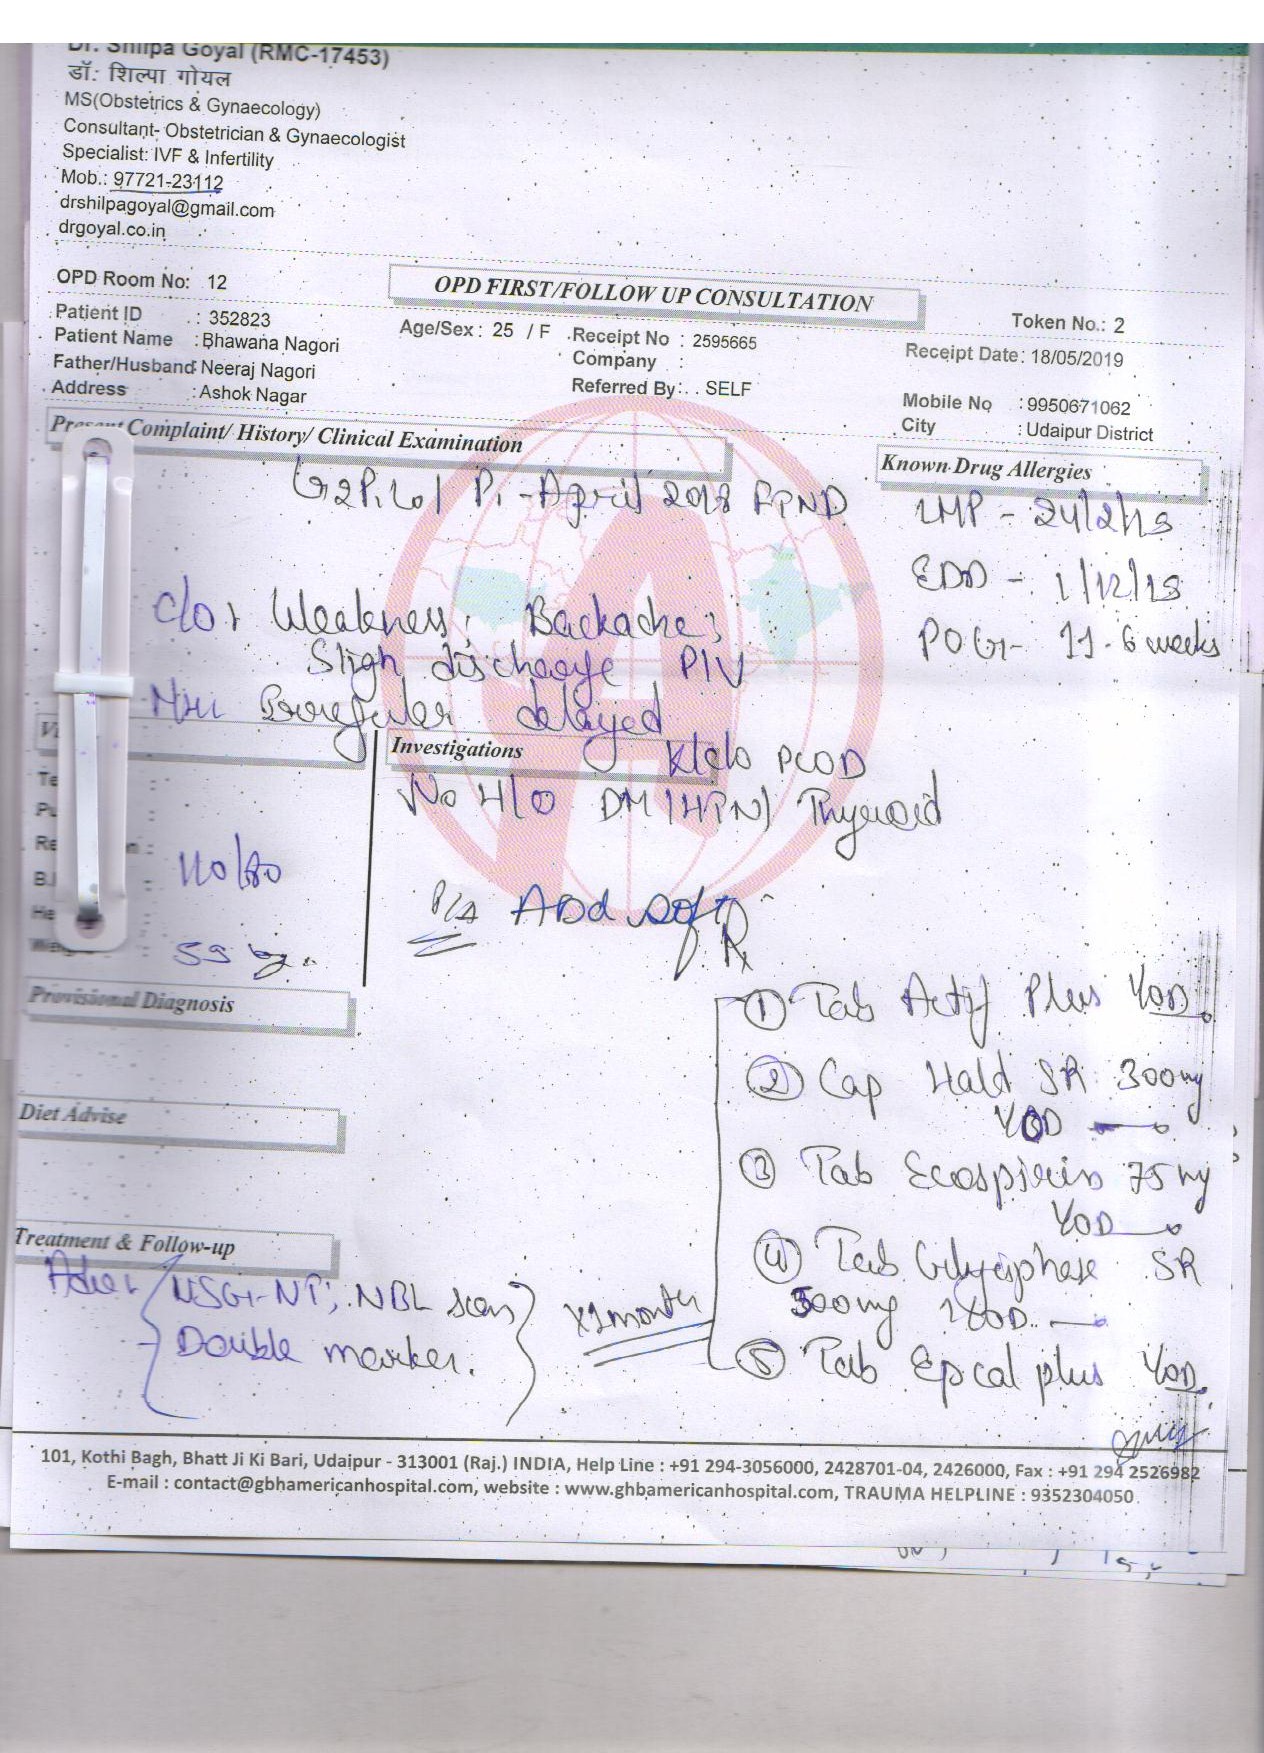 Dr. Shilpa Goyal (RMC-17453)
डॉ. शिल्पा गोयल
MS(Obstetrics & Gynaecology)
Consultant- Obstetrician & Gynaecologist
Specialist: IVF & Infertility
Mob.: 97721-23112
drshilpagoyal@gmail.com
drgoyal.co.in
OPD Room No: 12
OPD FIRST/FOLLOW UP CONSULTATION
Token No.: 2
Patient ID : 352823
Age/Sex : 25 / F Receipt No : 2595665
Receipt Date: 18/05/2019
Patient Name : Bhawana Nagori
Company :
Father/Husband: Neeraj Nagori
Referred By: SELF
Mobile No : 9950671062
Address : Ashok Nagar
City : Udaipur District
Present Complaint/ History/ Clinical Examination
Known Drug Allergies
P1 - April 2018 FTND
LMP - 24/2/19
EDD - 1/12/19
POG - 11.6 weeks
c/o, Weakness, Backache,
discharge P/V
delayed
Investigations
K/c/o PCOD
No H/O DM/HTN/ Thyroid
110/80
P/A Abd soft
59 kg.
Rx
Provisional Diagnosis
① Tab Actif Plus 1OD
② Cap Hald SR 300mg
1OD
Diet Advise
③ Tab Ecospirin 75mg
1OD
Treatment & Follow-up
④ Tab Glyciphase SR
500mg 1OD
USG-NT, NBL scan
Double marker.
x1month
⑤ Tab Epcal plus 1OD
101, Kothi Bagh, Bhatt Ji Ki Bari, Udaipur - 313001 (Raj.) INDIA, Help Line : +91 294-3056000, 2428701-04, 2426000, Fax : +91 294 2526982
E-mail : contact@gbhamericanhospital.com, website : www.ghbamericanhospital.com, TRAUMA HELPLINE : 9352304050